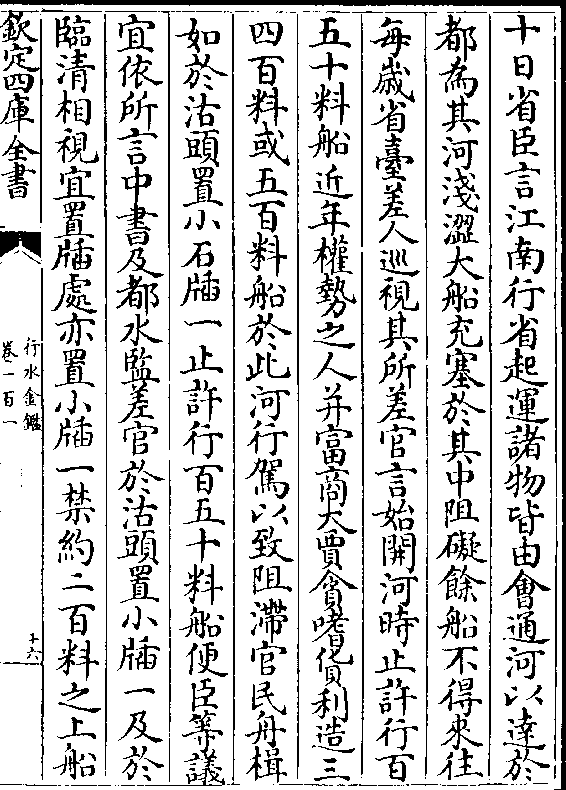 十日省臣言江南行省起運諸物皆由會通河以達於
都為其河淺澀大船充塞於其中阻礙餘船不得來往
每歲省臺差人巡視其所差官言始開河時止許行百
五十料船近年權勢之人并富商大賈貪嗜貨利造三
四百料或五百料船於此河行駕以致阻滯官民舟楫
如於沽頭置小石牐一止許行百五十料船便臣等議
宜依所言中書及都水監差官於沽頭置小牐一及於
臨清相視宜置牐處亦置小牐一禁約二百料之上船
欽定四庫全書
行水金鑑
卷一百一
十六